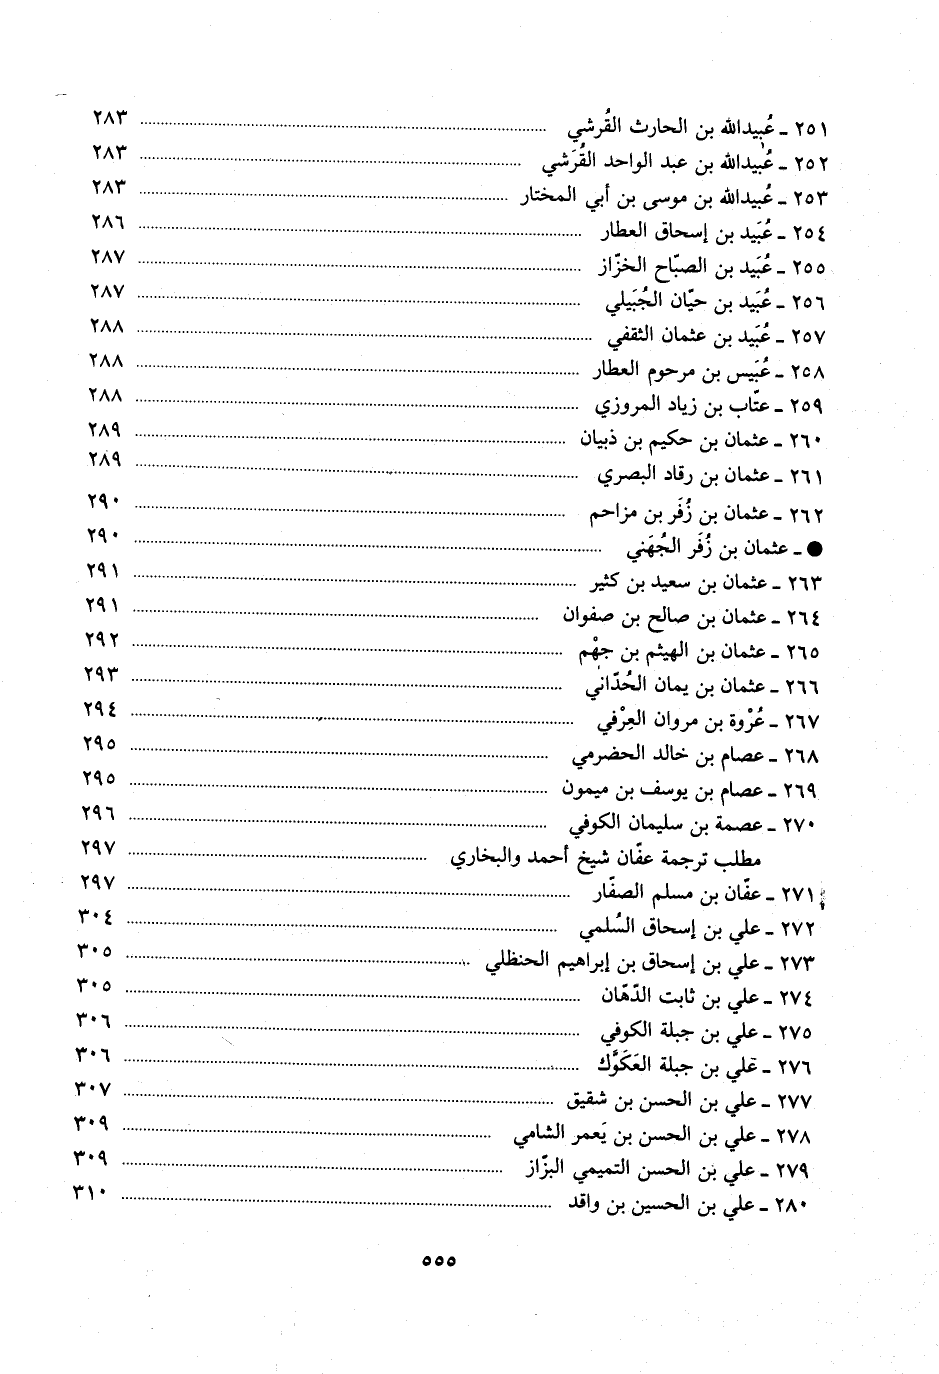 ٢٥١ ـ عُبيدالله بن الحارث القُرشي ........ ٢٨٣
٢٥٢ ـ عُبيدالله بن عبد الواحد القُرَشي ........ ٢٨٣
٢٥٣ ـ عُبيدالله بن موسى بن أبي المختار ........ ٢٨٣
٢٥٤ ـ عُبَيد بن إسحاق العطار ........ ٢٨٦
٢٥٥ ـ عُبَيد بن الصبّاح الخزّاز ........ ٢٨٧
٢٥٦ ـ عُبَيد بن حيّان الجُبَيلي ........ ٢٨٧
٢٥٧ ـ عُبَيد بن عثمان الثقفي ........ ٢٨٨
٢٥٨ ـ عُبَيس بن مرحوم العطار ........ ٢٨٨
٢٥٩ ـ عتّاب بن زياد المروزي ........ ٢٨٨
٢٦٠ ـ عثمان بن حكيم بن ذبيان ........ ٢٨٩
٢٦١ ـ عثمان بن رقاد البصري ........ ٢٨٩
٢٦٢ ـ عثمان بن زُفَر بن مزاحم ........ ٢٩٠
● ـ عثمان بن زُفَر الجُهَني ........ ٢٩٠
٢٦٣ ـ عثمان بن سعيد بن كثير ........ ٢٩١
٢٦٤ ـ عثمان بن صالح بن صفوان ........ ٢٩١
٢٦٥ ـ عثمان بن الهيثم بن جهْم ........ ٢٩٢
٢٦٦ ـ عثمان بن يمان الحُدّاني ........ ٢٩٣
٢٦٧ ـ عُرْوة بن مروان العِرْفي ........ ٢٩٤
٢٦٨ ـ عصام بن خالد الحضرمي ........ ٢٩٥
٢٦٩ ـ عصام بن يوسف بن ميمون ........ ٢٩٥
٢٧٠ ـ عصمة بن سليمان الكوفي ........ ٢٩٦
مطلب ترجمة عفّان شيخ أحمد والبخاري ........ ٢٩٧
٢٧١ ـ عفّان بن مسلم الصفّار ........ ٢٩٧
٢٧٢ ـ علي بن إسحاق السُلمي ........ ٣٠٤
٢٧٣ ـ علي بن إسحاق بن إبراهيم الحنظلي ........ ٣٠٥
٢٧٤ ـ علي بن ثابت الدّهّان ........ ٣٠٥
٢٧٥ ـ علي بن جبلة الكوفي ........ ٣٠٦
٢٧٦ ـ علي بن جبلة العَكَوَّك ........ ٣٠٦
٢٧٧ ـ علي بن الحسن بن شقيق ........ ٣٠٧
٢٧٨ ـ علي بن الحسن بن يَعمر الشامي ........ ٣٠٩
٢٧٩ ـ علي بن الحسن التميمي البزّاز ........ ٣٠٩
٢٨٠ ـ علي بن الحسين بن واقد ........ ٣١٠
٥٥٥